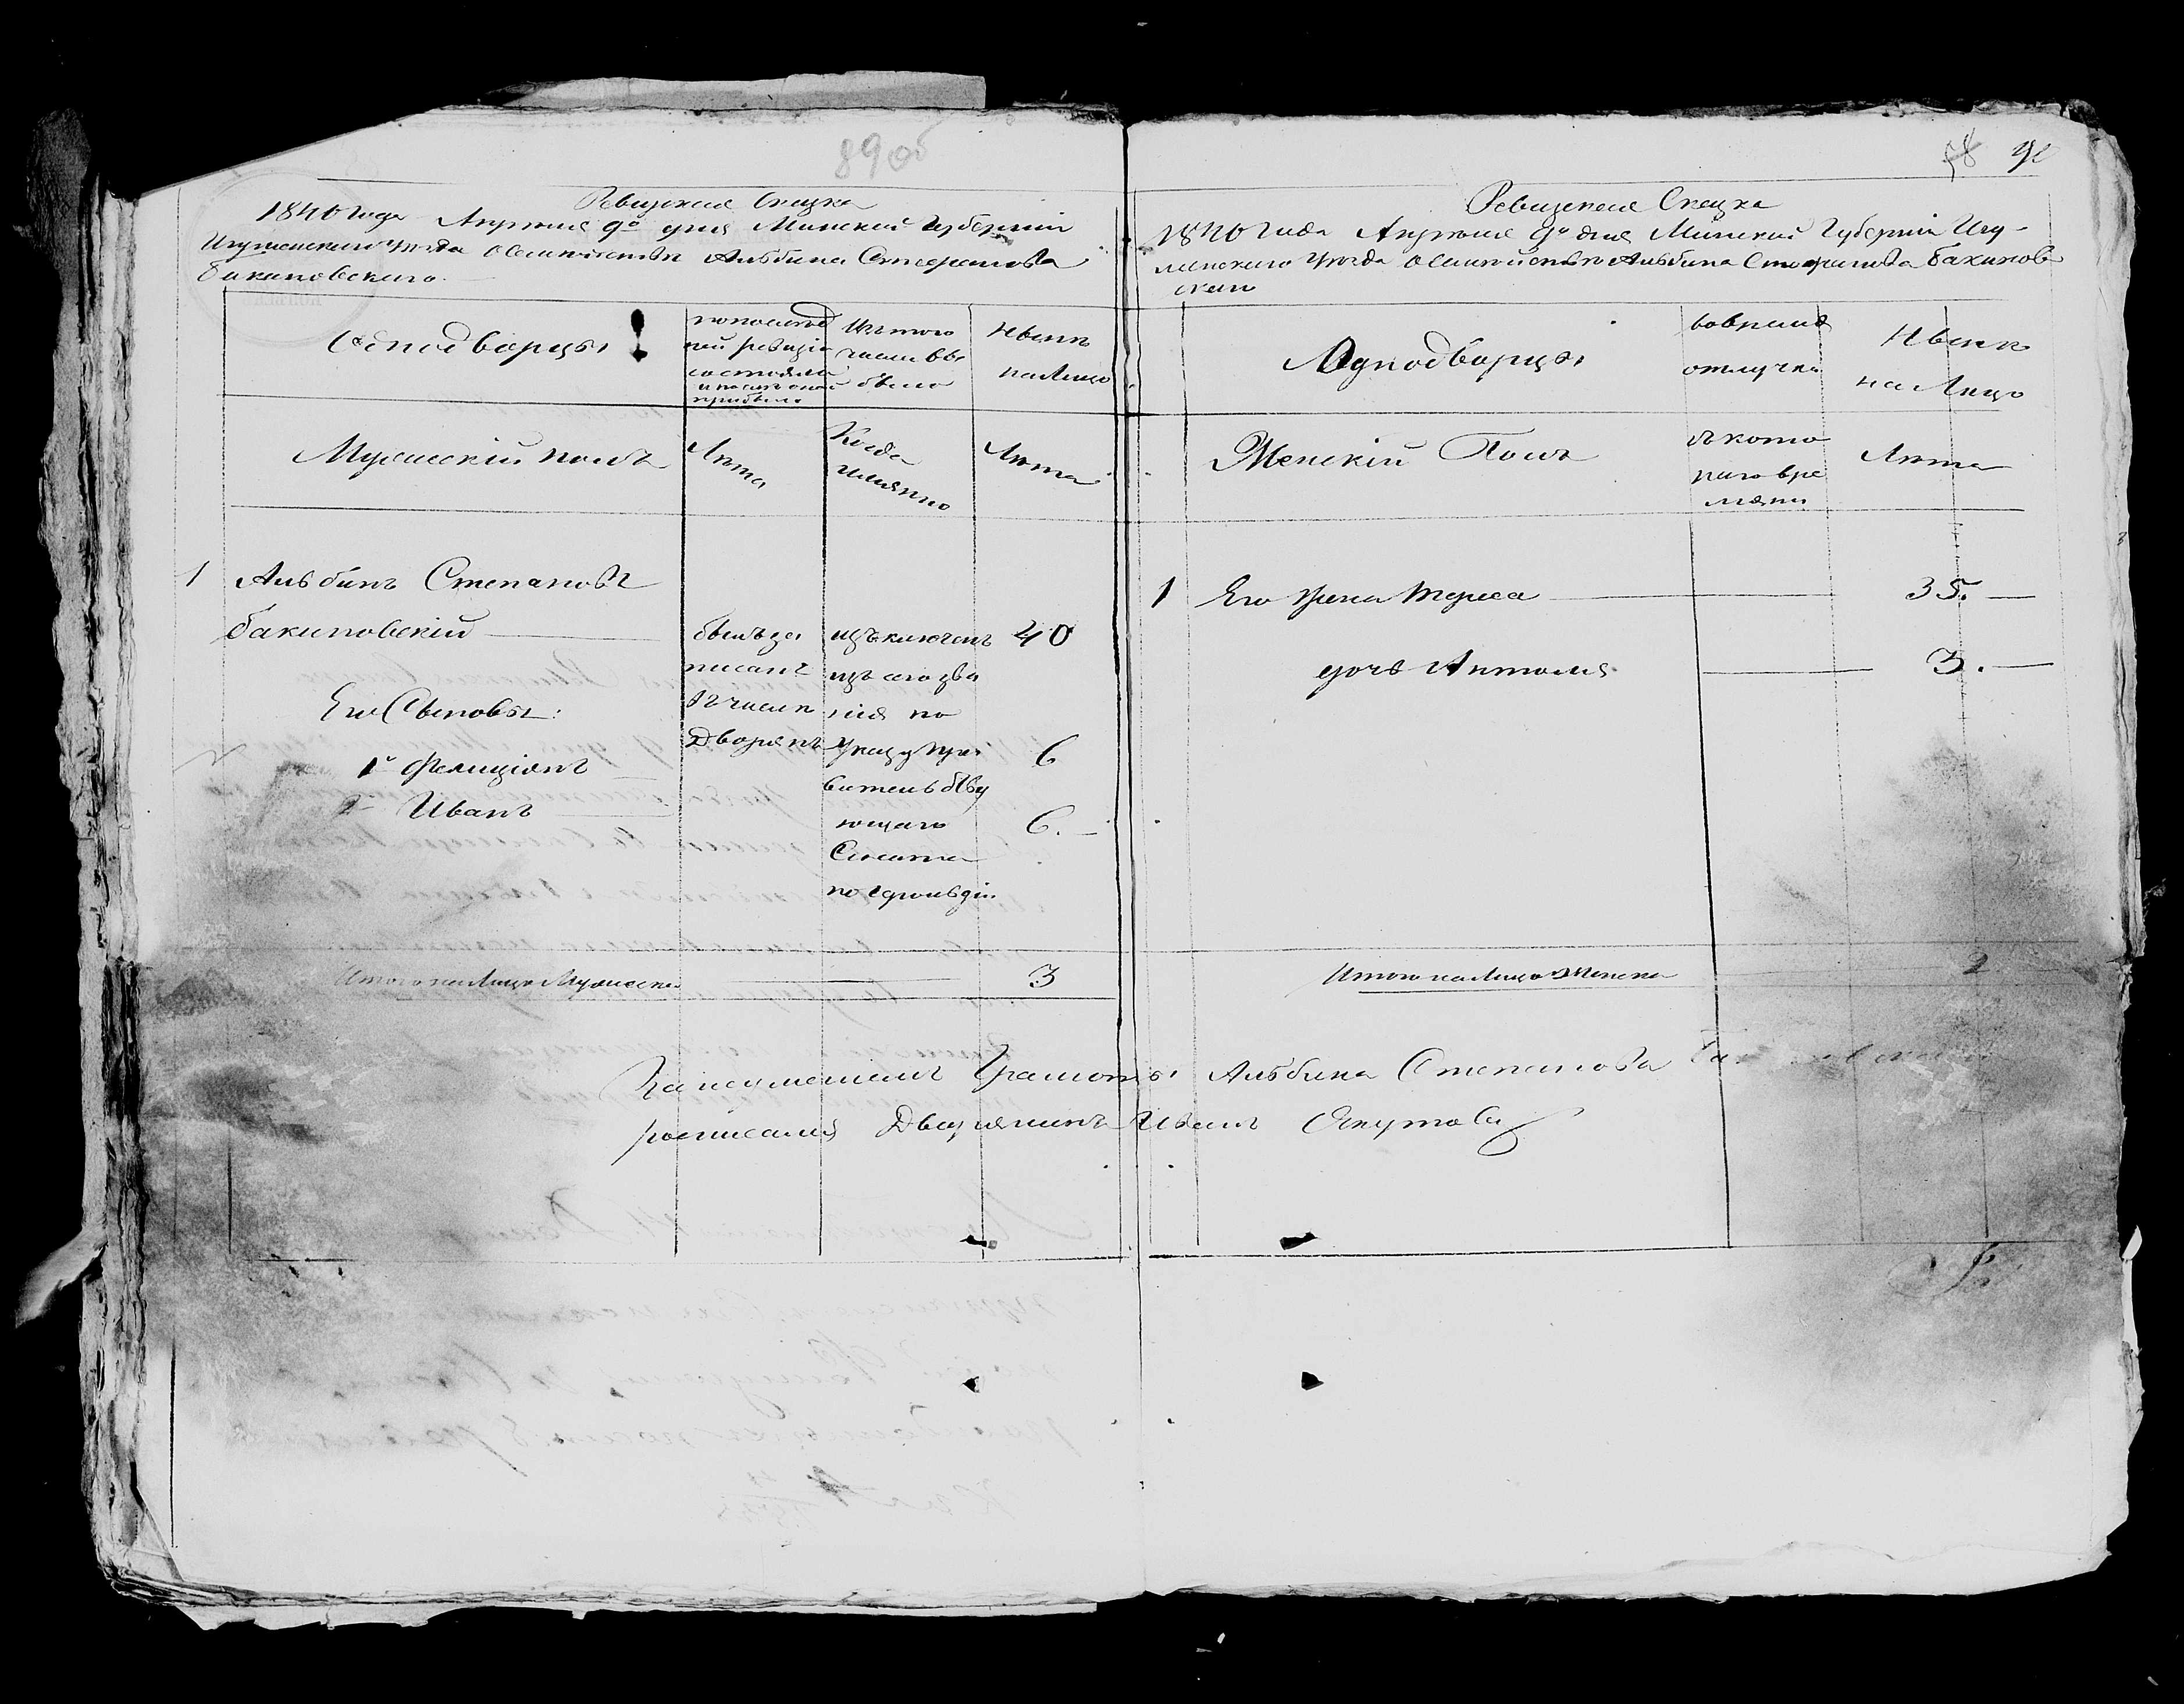 89об
Ревизская Сказка
1840 года Апреля 9го дня Минской Губернии
Игуменскаго уезда о семействе Альбина Стефанова
Бакиновскаго.
Однодворцы
по послед
ней ревизіи
состояло
и после оной
прибыло
Изъ того
числа вы
было
Ныне
на Лицо
Мужескій полъ
Лета
Когда
именно
Лета
1 Альбинъ Степановъ
Бакиновскій 40
былъ за
писанъ
въ числе
Дворянъ
изъключенъ
изъ сего зва
нія по
Указу Пра
вительству
ющаго
Сената
по герольдіи
Его Сыновья:
1й Фелиціянъ 6
2й Иванъ 6.
Итого на Лицо Мужеска 3
78 90
Ревизская Сказка
1840 года Апреля 9го дня Минской Губерніи Игу-
менскаго уезда о семействе Альбина Стефанова Бакинов
скаго
Однодворцы
во временной
отлучке
Ныне
на Лицо
Женскій Полъ
съ кото
раго вре
мени
Лета
1 Его жена Тереса 35.
дочь Антоля 3.
Итого на Лицо Женска 2
За неуменіемъ Грамоты Альбина Степанова
росписался Дворянинъ Иванъ